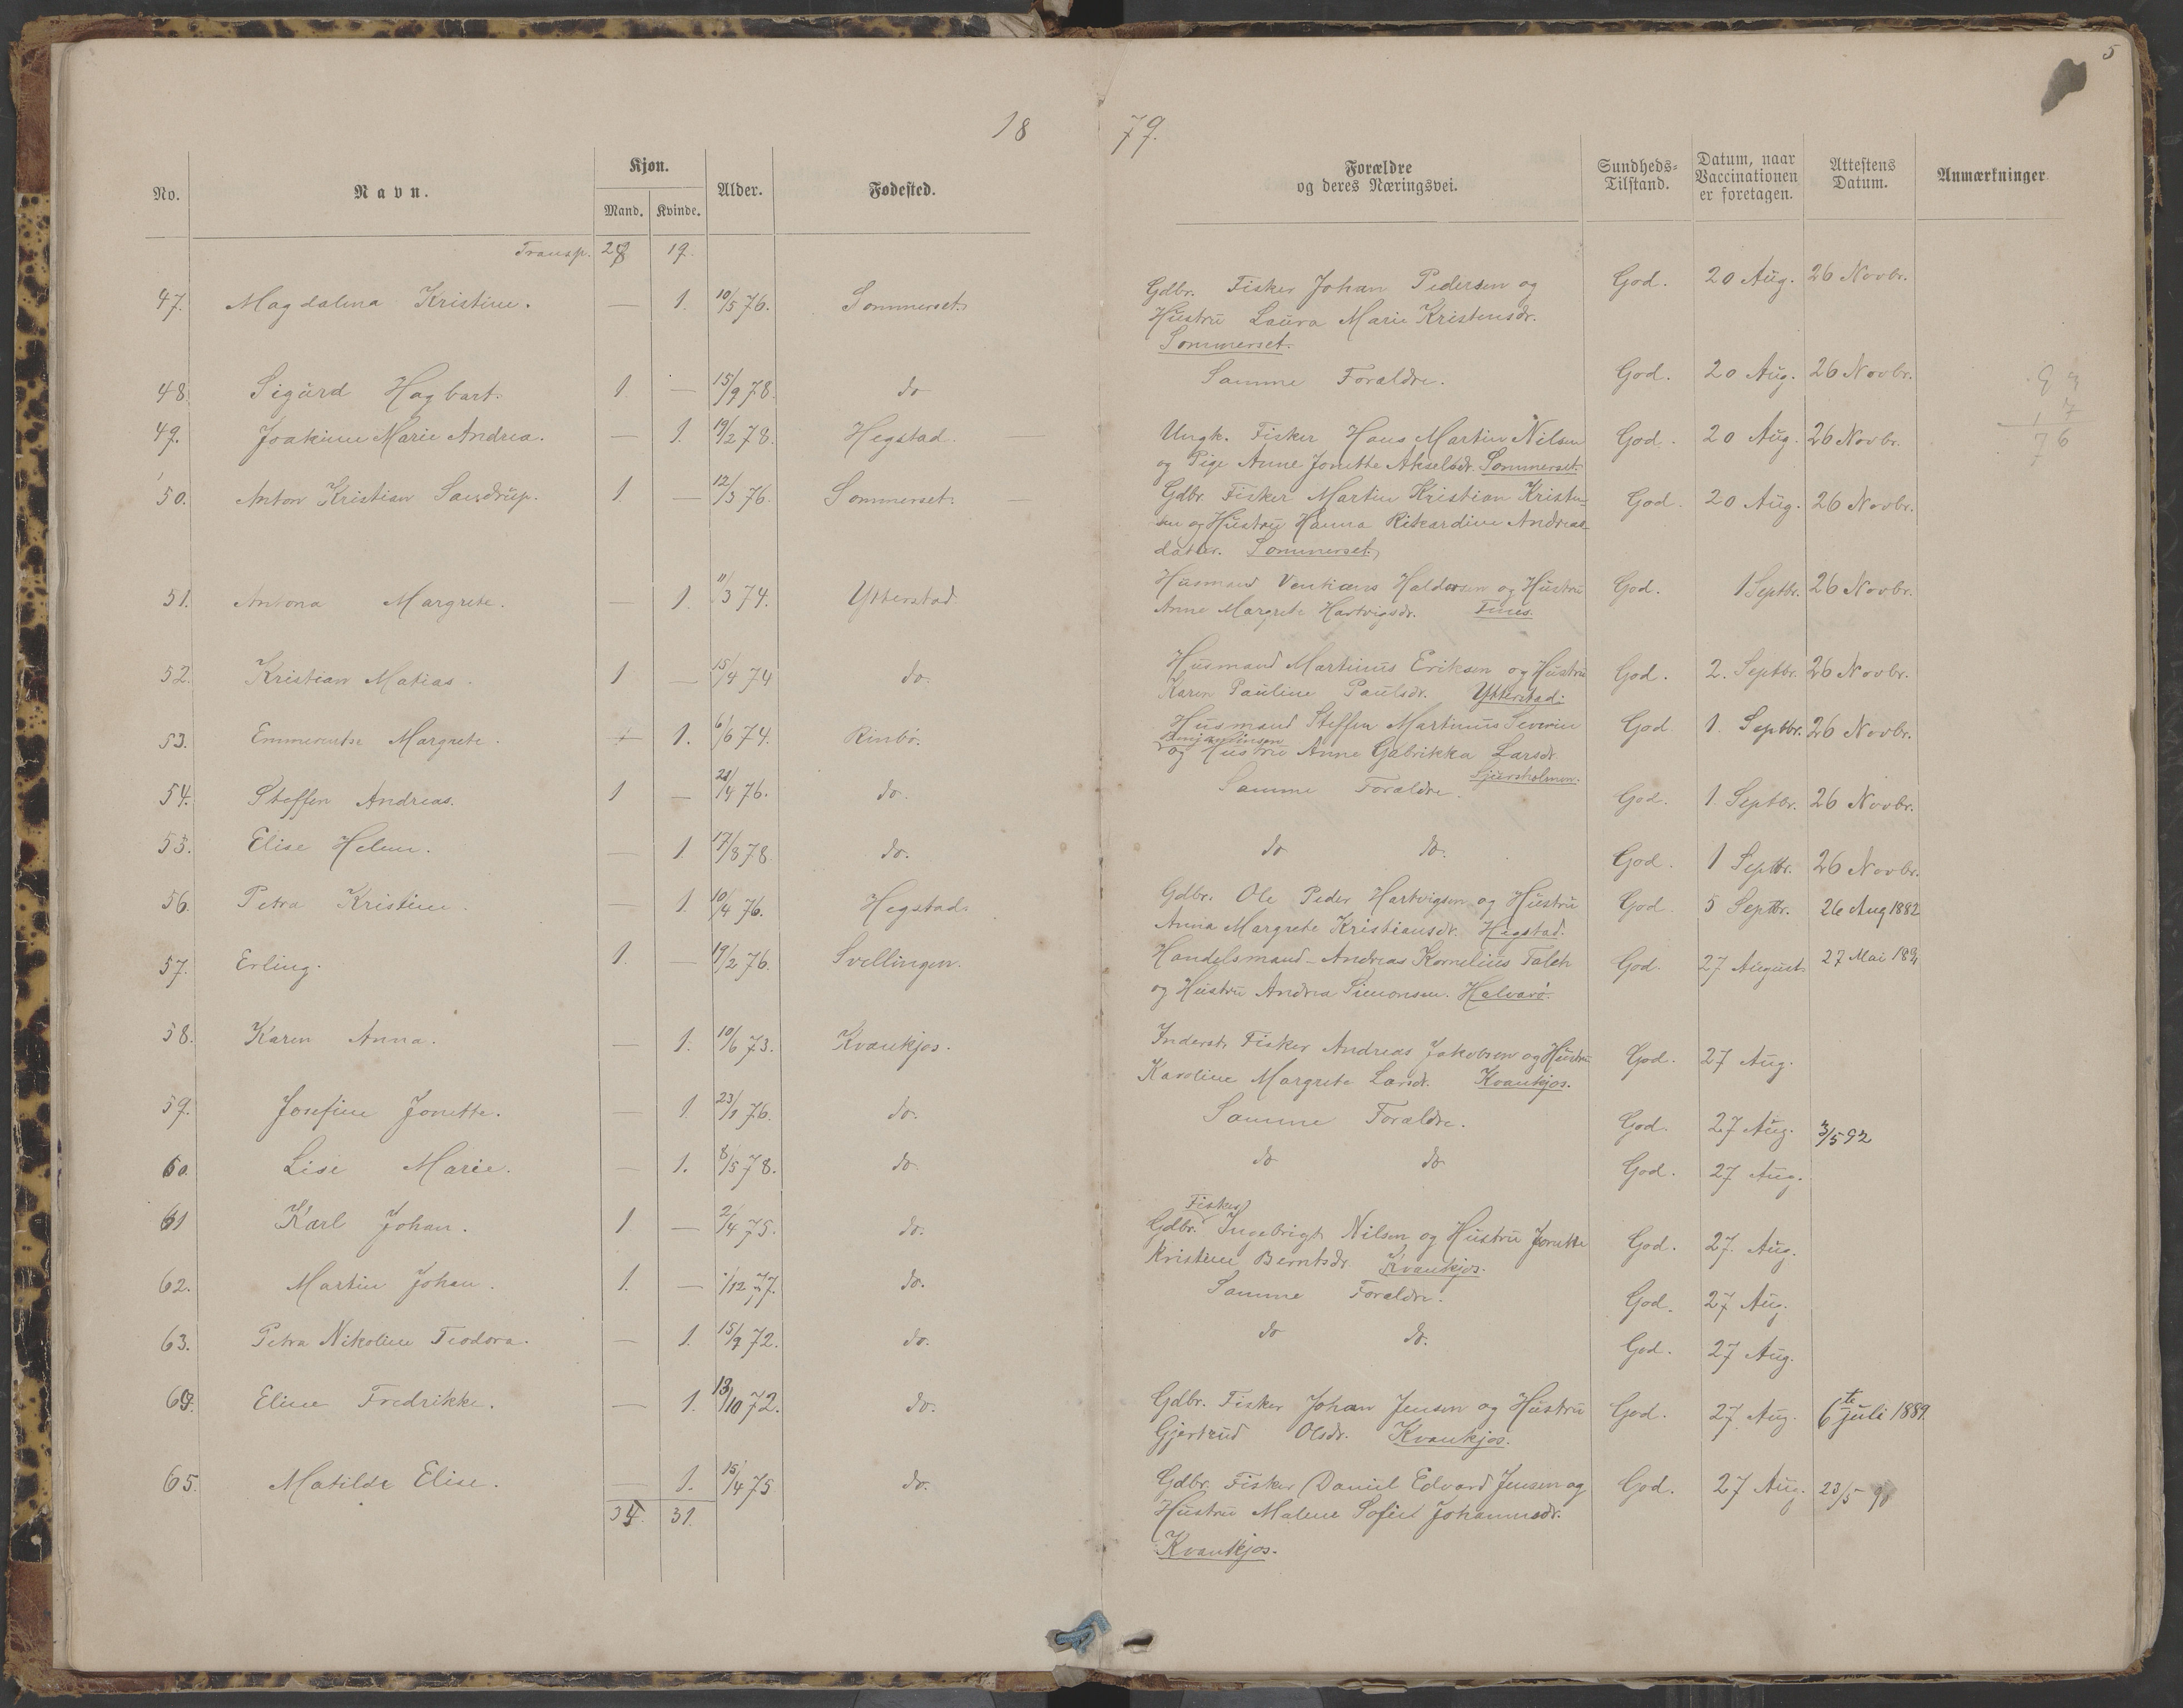 5
1879.
No. Navn. Kjøn. Alder. Fødested. Forældre Sundheds- Datum, naar Attestens Anmærkninger
Mand. Kvinde. og deres Næringsvei. Tilstand. Vaccinationen Datum.
er foretagen.
Transp. 28 19
47. Magdalena Kristine. — 1. 10/5 76. Sommerset. Gdbr. Fisker Johan Pedersen og God. 20 Aug. 26 Novbr.
Hustru Laura Marie Kristensdr.
Sommerset.
48. Sigurd Hagbart. 1. — 15/9 78. do Samme Forældre. God. 20 Aug. 26 Novbr.
49. Joakime Marie Andrea. — 1. 19/2 78. Hegstad. Ungk. Fisker Hans Martin Nilsen God. 20 Aug. 26 Novbr.
og Pige Anne Jonette Akselsdr. Sommerset.
50. Anton Kristian Saxdrup. 1. — 12/3 76. Sommerset. Gdbr. Fisker Martin Kristian Kristen- God. 20 Aug. 26 Novbr.
sen og Hustru Hanna Rikardine Andreas-
datter. Sommerset.
51. Antona Margrete. — 1. 11/3 74. Ytterstad. Husmand Haldorsen og Hustru God. 1 Septbr. 26 Novbr.
Anne Margrete Hartvigsdr. Fines.
52. Kristian Matias. 1 — 15/4 74 do. Husmand Martinus Eriksen og Hustru God. 2. Septbr. 26 Novbr.
Karen Pauline Paulsdr. Ytterstad.
53. Emmerentse Margrete. 1. 6/6 74. Rinbø. Husmand Steffen Martinus Severin God. 1. Septbr. 26 Novbr.
Benjaminsen
og Hustru Anne Gabrikka Larsdr.
Sjursholmen.
54. Steffen Andreas. 1 — 21/4 76. do. Samme Forældre. God. 1 Septbr. 26 Novbr.
55. Elise Helene. — 1 17/8 78. do. do do. God. 1 Septbr. 26 Novbr.
56. Petra Kristine. — 1. 10/4 76. Hegstad. Gdbr. Ole Peder Hartvigsen og Hustru God. 5 Septbr. 26 Aug 1882
Anna Margrete Kristiansdr. Hegstad.
57. Erling. 1. — 19/2 76. Svellingen. Handelsmand Andreas Kornelius Falch God. 27 August 27 Mai 1891
og Hustru Andrea Simonsen. Halvarø.
58. Karen Anna. — 1. 10/6 73. Kvankjos. Inderst, Fisker Andreas Jakobsen og Hustru God. 27 Aug.
Karoline Margrete Larsdr. Kvankjos.
59. Josefine Jonette. — 1. 23/1 76. do. Samme Forældre. God. 27 Aug. 3/5 92
60. Lise Marie. — 1. 8/5 78. do. do do God. 27 Aug.
Fisker
61 Karl Johan. 1. — 2/4 75. do. Gdbr. Ingebrigt Nilsen og Hustru Jonette God. 27. Aug.
Kristine Berntsdr. Kvankjos.
62. Martin Johan. 1. — 1/12 77. do. Samme Forældre. God. 27 Aug.
63. Petra Nikoline Teodora. — 1. 15/9 72. do. do do. God. 27 Aug.
64. Eline Fredrikke. — 1. 13/10 72. do. Gdbr. Fisker Johan Jensen og Hustru God. 27 Aug. 6te juli 1889.
Gjertrud Olsdr. Kvankjos.
65. Matilde Elise. — 1. 15/4 75 do. Gdbr. Fisker Daniel Edvard Jensen og God. 27 Aug. 23/5 90
Hustru Malene Sofie Johannesdr.
34. 31.
Kvankjos.